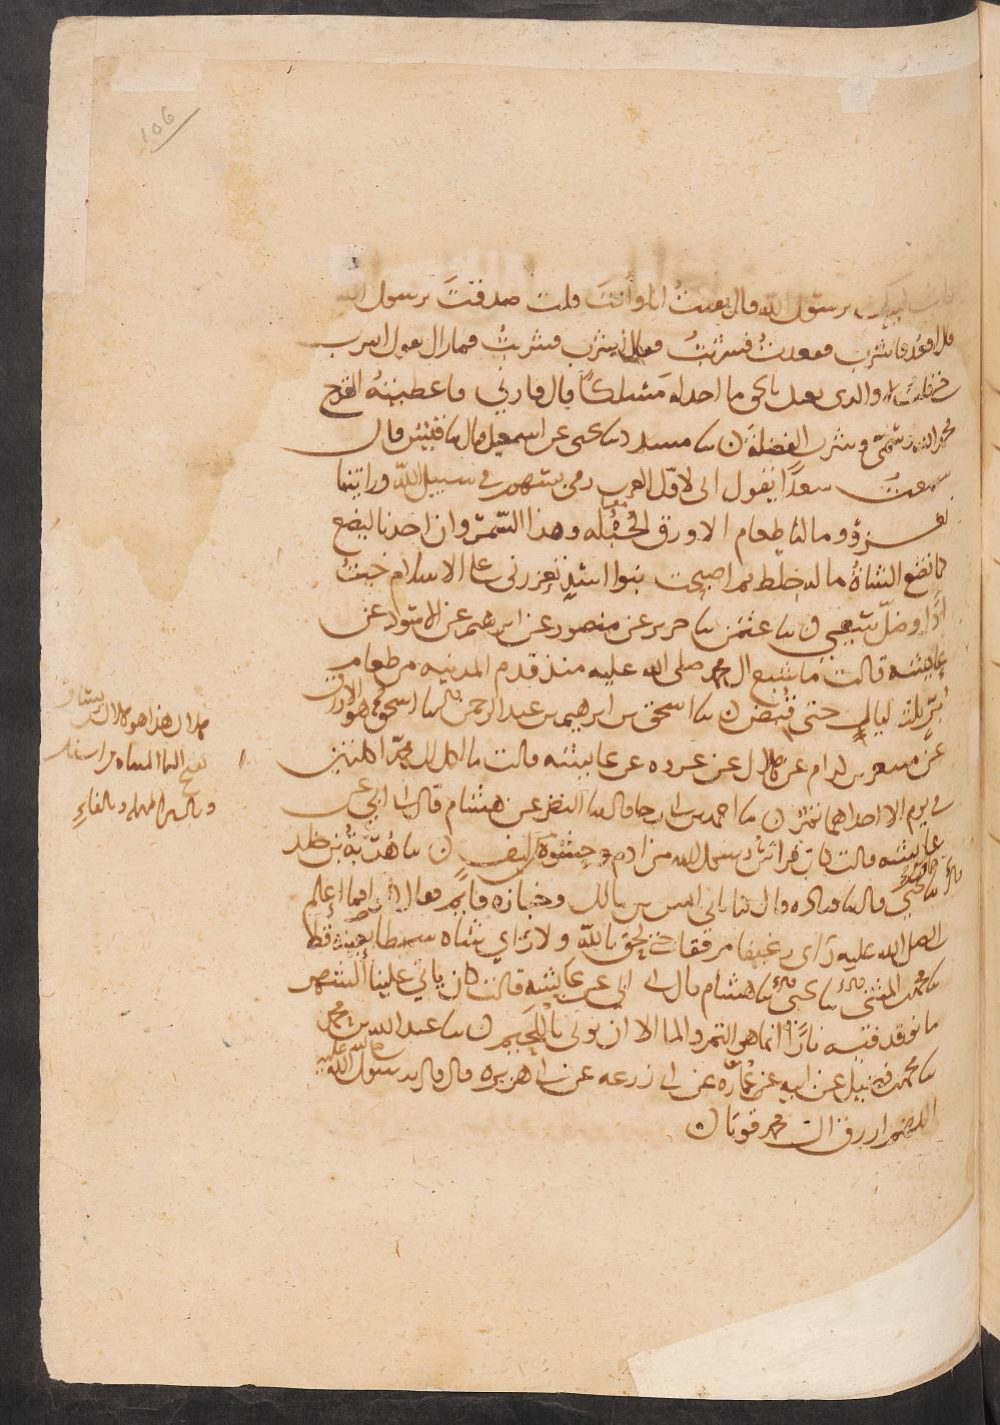 يرسول الله قال بقيتُ انا وأنتَ قلت صدقتَ يرسول الله
قال اقعُد فاشرب فقعدتُ فشربتُ فقال اشرب فشربتُ فما زال يقول اشرب
حتى قلت لا والذى بعثك بالحق ما اجد له مَسْلكًا قال فارني فاعطيتهُ القدح
فحمد الله وسَمّى وشرب الفضلةَ ن سا مسدد سا يحيى عن اسمعيل قال سا قيس قال
سمعتُ سعدًا يقول انى لاوّل العرب رمى بسهم في سبيل الله ورايتنا
نغزو وما لنا طعام الا ورق الحُبُله وهذا السَّمُر وان احدنا ليضع
كما تضع الشاةُ ما له خلط ثم اصبحت بنوا اسَدٍ تعزرنى على الاسلام خبتُ
اذًا وضلّ سَعيى ن سا عثمن سا جرير عن منصور عن ابرهيم عن الاسود عن
عايشه قالت ما شبع ال محمد صلى الله عليه منذ قدم المدينه من طعامِ
بُرٍّ ثلث ليالٍ حتى قُبض ن سا اسحق بن ابرهيم بن عبد الرحمن قال سا اسحق هو الازرق
عن مسعر بن كدام عن هلال عن عروه عن عايشه قالت ما اكل ال محمدٍ اكلتين
في يوم الا احداهما تمرٌ ن سا احمد بن ابى رجا قال سا النضر عن هشام قال اخبرنى ابي عن
عايشه قالت كان فراش رسول الله من ادم وحشوه ليف ن سا هُدْبةُ بن خلد
قال سا همام بن يحيى قال سا قتاده قال كنا ناتى انس بن مالك وخبازه قايم فقال كلوا فما اعلم
النبى صلى الله عليه رَاى رغيفا مرققا حتى لحق بالله ولا رَاي شاه سميطا بعينه قط
سا محمد بن المثنى قال سا يحيى قال سا هشام قال اخبرنى ابى عن عايشه قالت كان ياتي علينا الشهر
ما نوقد فيه نارًا انما هو التمر والما الا ان نوتى باللُحَيم ن سا عبد الله بن محمد
سا محمد بن فضيل عن ابيه عن عُمارة عن ابى زرعه عن ابى هريره قال قال رسول الله صلى الله عليه
اللهم ارزق ال محمد قوتا ن
هلال هذا هو هلال
وبالزاى المهمله وبالفاءِ
106